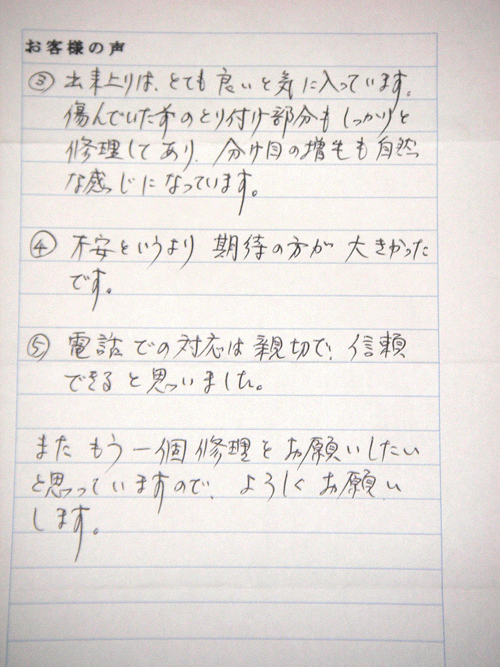 お客様の声
③ 出来上りは、とても良いと気に入っています。
傷んでいた のとり付け部分もしっかりと
修理してあり、分け目の増毛も自然
な感じになっています。
④ 不安というより 期待の方が 大きかった
です。
⑤ 電話での対応は親切で、信頼
できると思いました。
また もう一個修理をお願いしたい
と思っていますので、よろしくお願い
します。